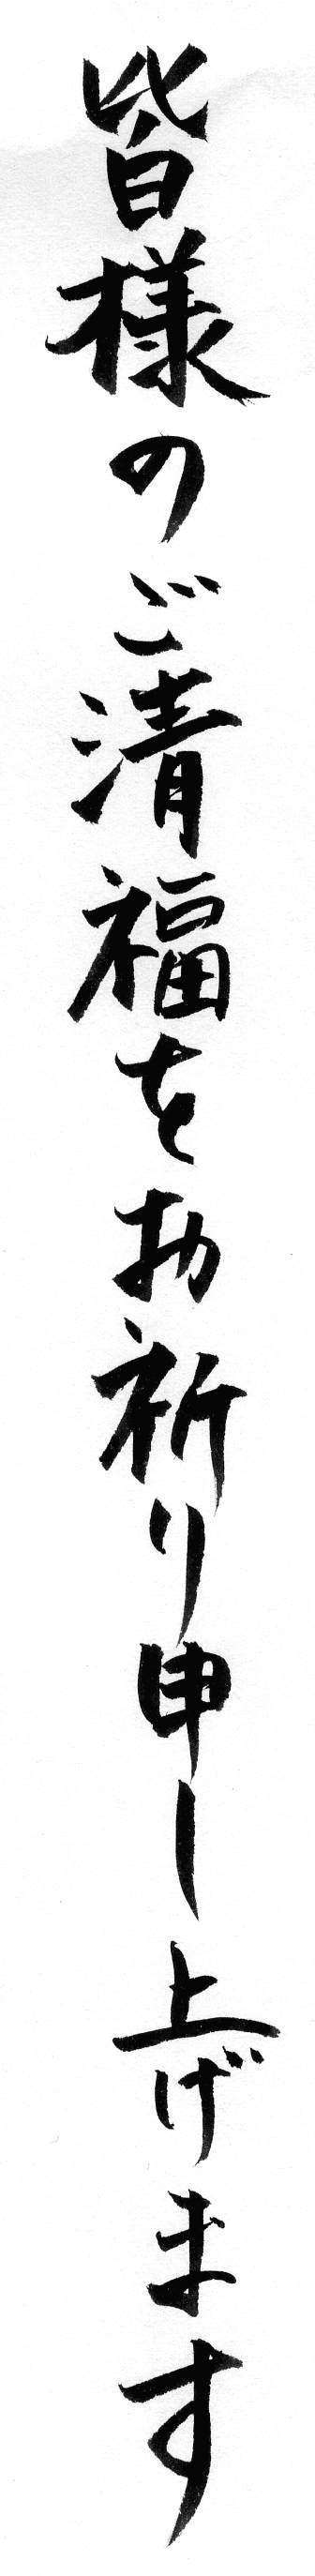 皆様のご清福をお祈り申し上げます